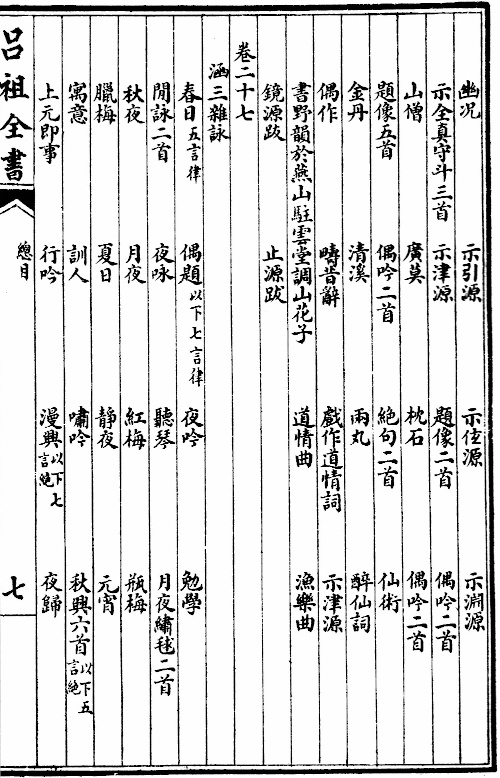 幽況 示引源 示位源 示淵源
示全真守斗三首 示津源 題像二首 偶吟二首
山僧 廣莫 枕石 偶吟二首
題像五首 偶吟二首 絕句二首 仙術
金丹 清溪 兩丸 醉仙詞
偶作 疇昔辭 戲作道情詞 示津源
書野韻於燕山駐雲堂調山花子 道情曲 漁樂曲
鏡源跋 止源跋
卷二十七
涵三雜詠
春日五言律 偶題以下七言律 夜吟 勉學
閒詠二首 夜咏 聽琴 月夜繡毬二首
秋夜 月夜 紅梅 瓶梅
臘梅 夏日 靜夜 元宵
寓意 訓人 嘯吟 秋興六首以下五言絕
上元即事 行吟 漫興以下七言絕 夜歸
呂祖全書 總目 七